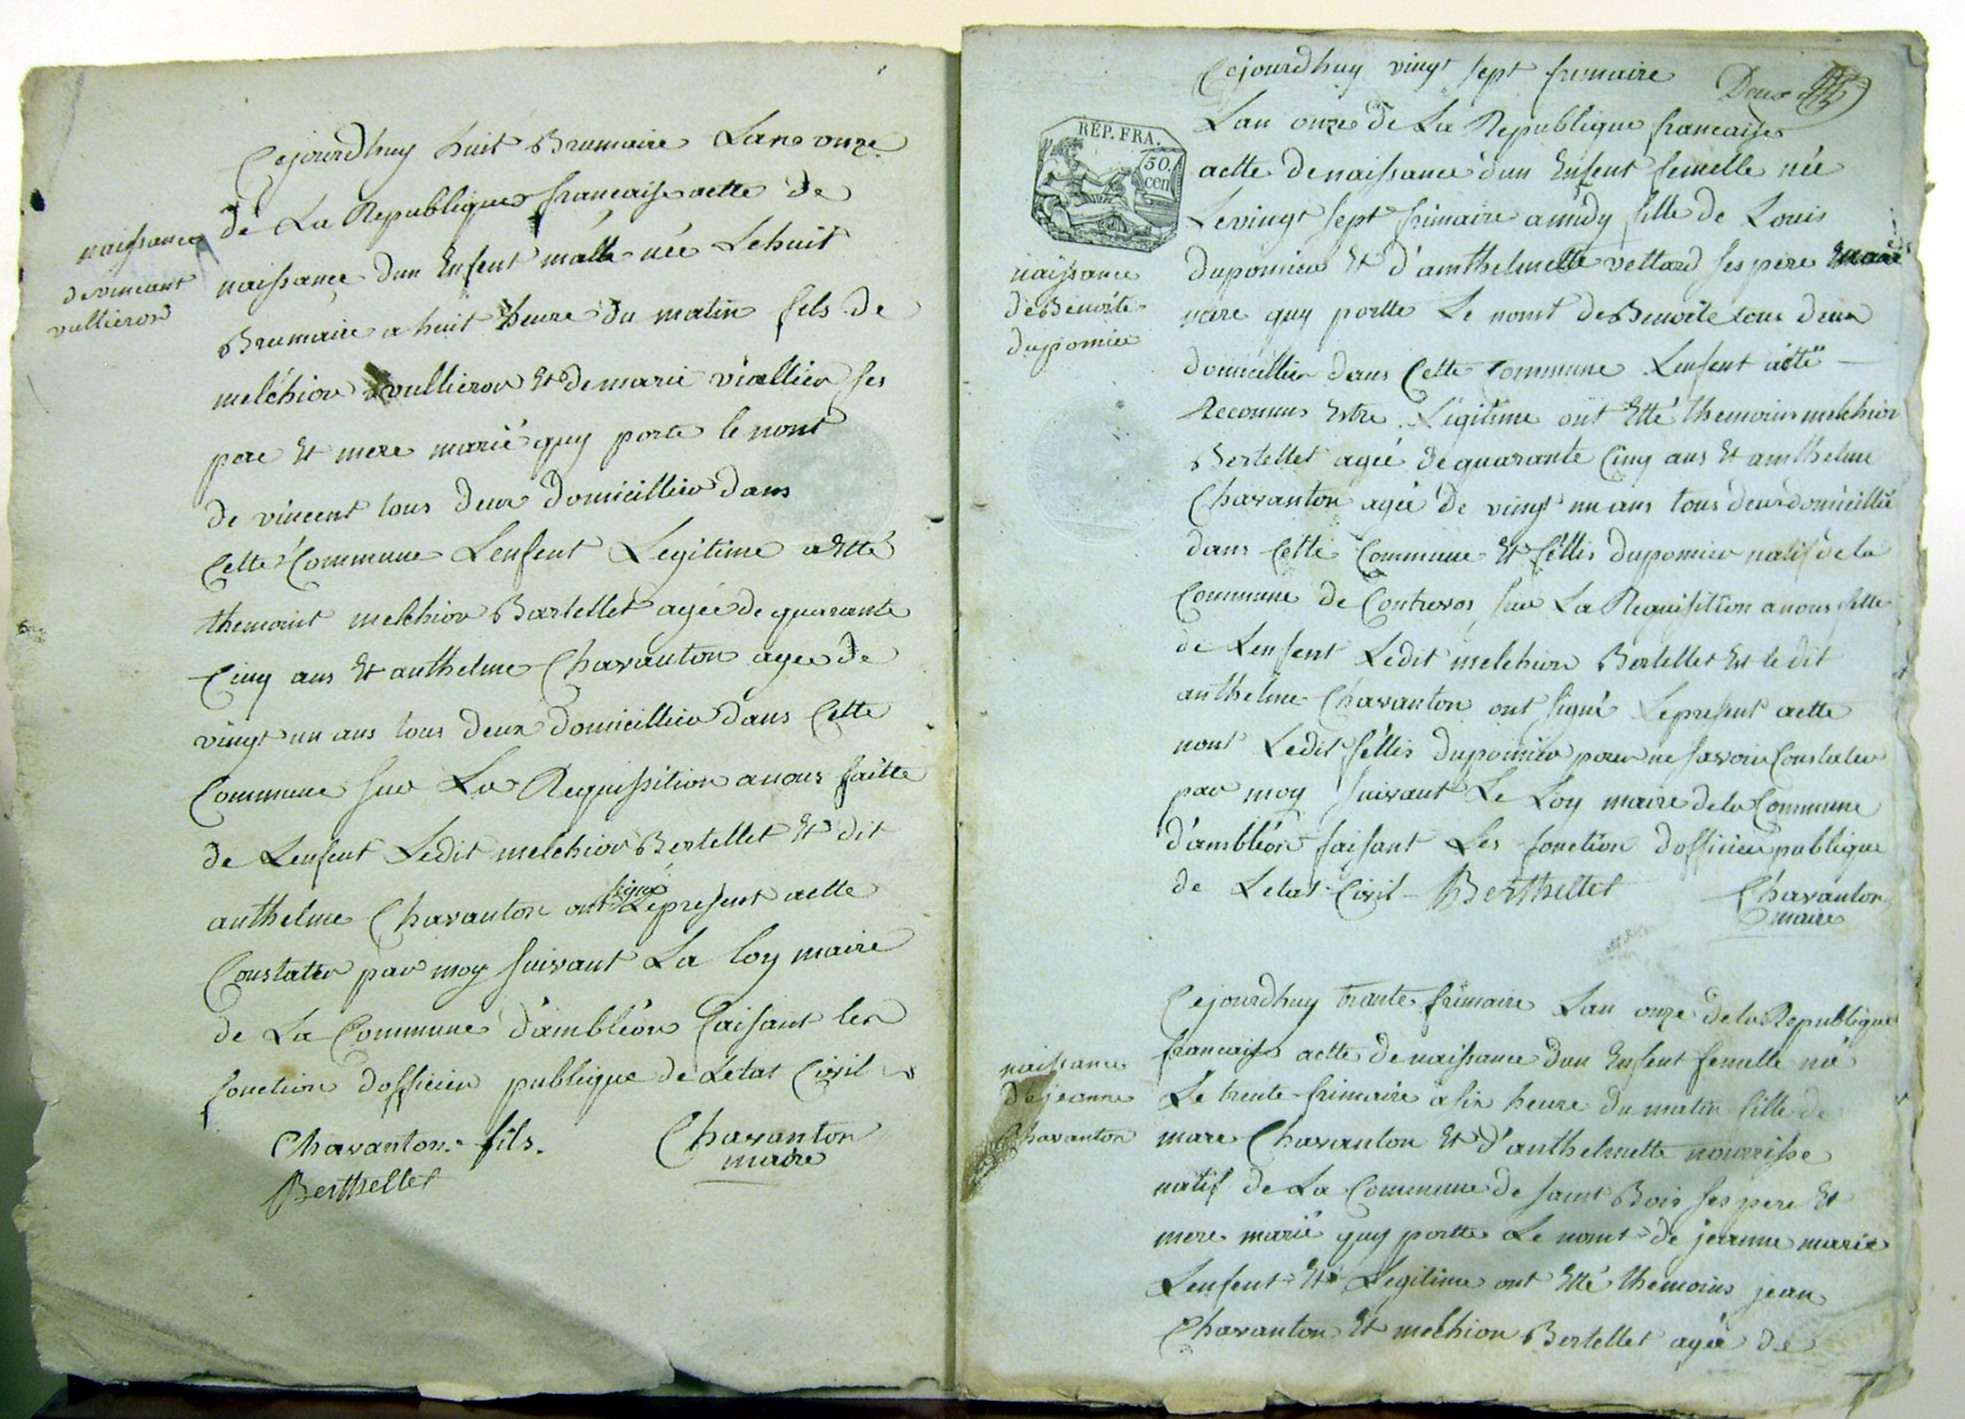 naissance
de vincant
vullierod
Cejourdhuy huit Brumaire Lan onze
de La Republique francaise actte de
naissance dun Enfent malle née Lehuit
Brumaire a huit heure du matin fils de
melchior vullierod Et de marie viallier ses
pere Et mere marié quy porte le nomt
de vincent tous deux domicillier dans
Cette Commune Lenfent Legitime a Etté
themoint melchior Bartellet agée de quarante
Cinq ans Et anthelme Chavanton agee de
vingt un ans tous deux domicillier dans Cette
Commune sur La Requissition a nous faitte
de Lenfent Ledit melchior Bertellet Et dit
anthelme Chavanton ont signé Lepresent actte
Constater par moy suivant La loy maire
de La Commune d'ambléon faisant les
fonction dofficier publique de Letat Civil
Chavanton fils.
Chavanton
maire
Berthellet
Deux
REP. FRA.
50.
cen
naissance
de Benoite
dupomier
Cejourdhuy vingt sept frimaire
Lan onze de La Republique francaise
actte de naissance dun Enfent femelle née
Levingt sept frimaire a midy fille de Louis
dupomier Et d'amthelmette vettard ses pere Et
mere quy portte Le nomt de Benoite tous deux
domicillier dans Cette Commune Lenfent a été
Reconnus Estre Légitime ont Etté themoins melchior
Bertellet agée de quarante Cinq ans Et amthelme
Chavanton agée de vingt un ans tous deux domicillié
dans Cette Commune Et féllis dupomier natif de la
Commune de Contrevos sur La Requisition a nous fette
de Lenfent Ledit melchior Bertellet Et le dit
anthelme Chavanton ont signé Lepresent actte
nont Ledit féllis dupomier pour ne savoir Constater
par moy suivant Le Loy maire de la Commune
d'ambléon faisant Les fonction dofficier publique
de Letat Civil Berthellet
Chavanton
maire
naissance
de jeanne
Chavanton
Cejourdhuy trante frimaire Lan onze de la Republique
francaise actte de naissance dun Enfent femelle né
Le trente frimaire a six heure du matin fille de
marc Chavanton Et d'anthelmette nourrisse
natif de La Commune de saint Bois ses pere Et
mere marié quy portte Le nomt de jeanne marie
Lenfent Et Legitime ont Etté themoins jean
Chavanton Et melchior Bertellet agée de